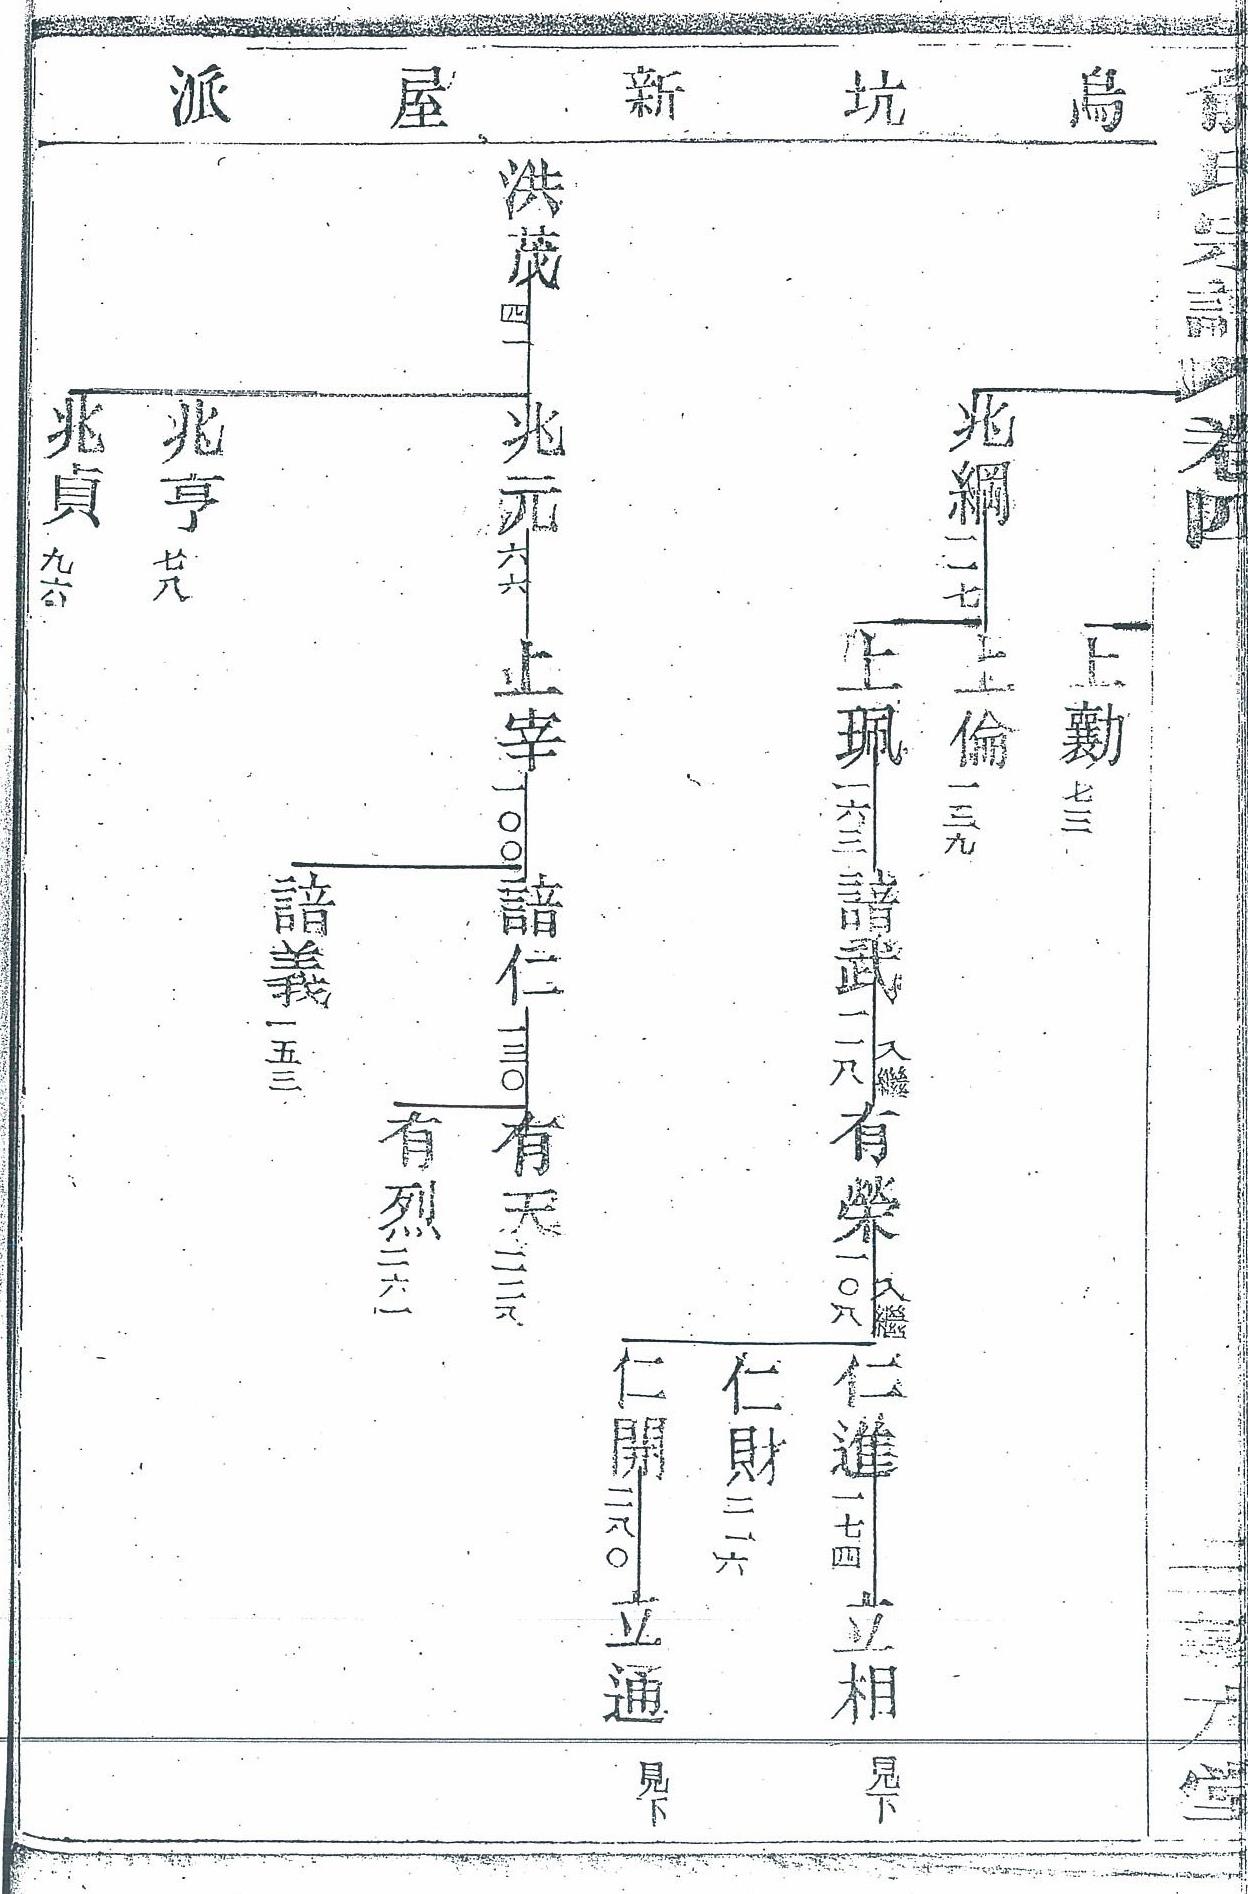 烏坑新屋派
卷四
上勷 七三
兆綱 一一七
上倫 一三九
上珮 一六三
諳武 一一八 入繼
有榮 一〇八 入繼
仁進 一七四
立相 見下
仁財 三一六
仁開 二八〇
立通 見下
洪茂 四一
兆元 六六
上宰 一〇〇
諳仁 一三〇
有天
有烈 二六一
諳義 一五三
兆亨 廿八
兆貞 九六